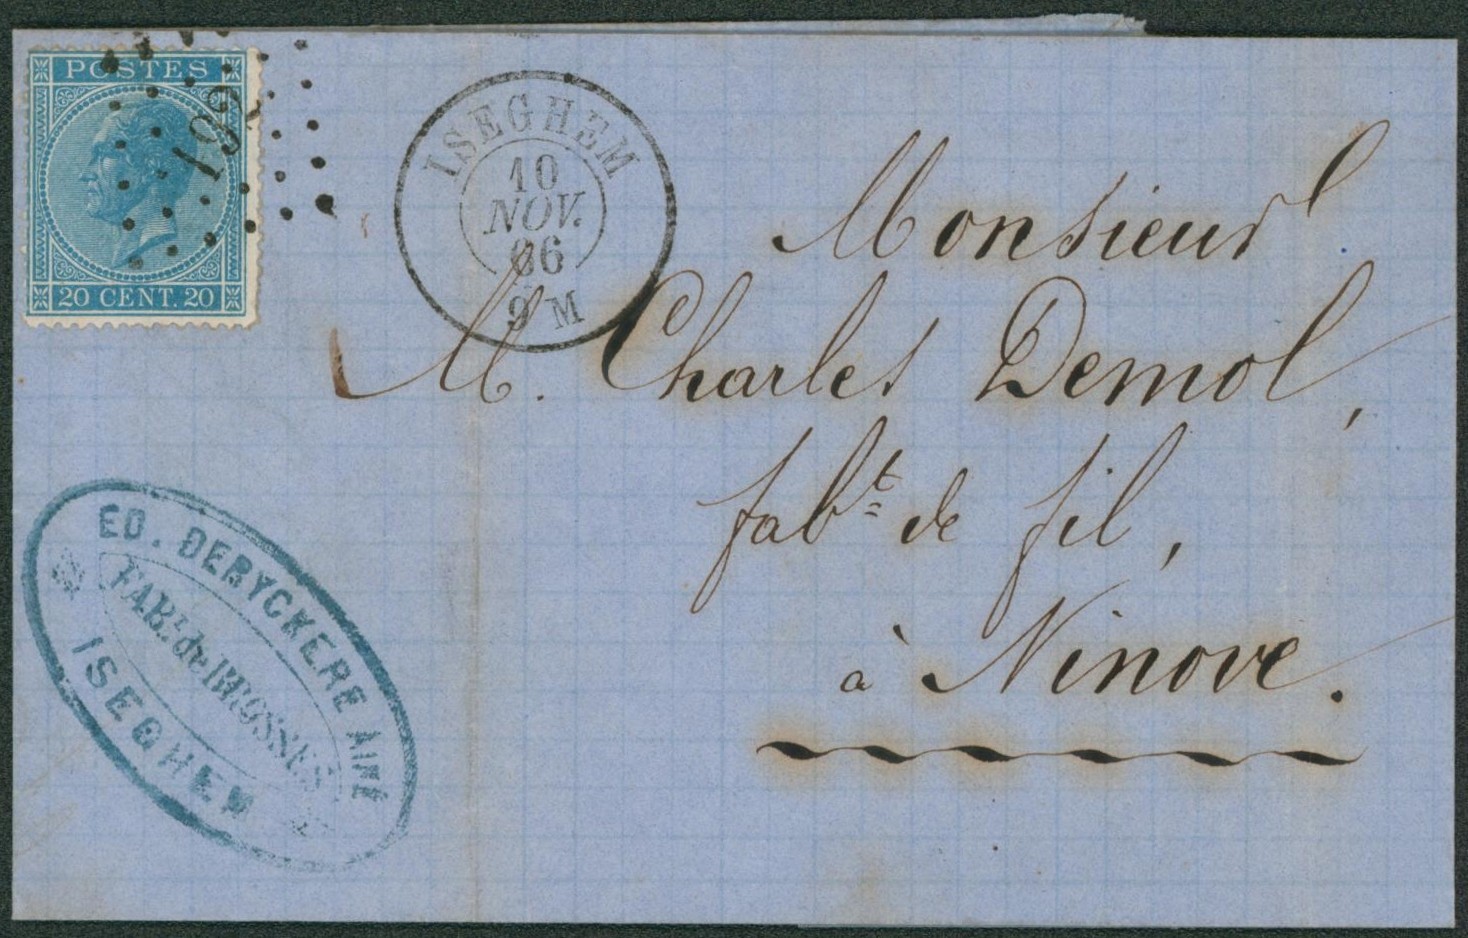 POSTES
20 CENT. 20
ISEGHEM
10
NOV.
9 M
Monsieur
M. Charles Demol,
fabt de fil,
à Ninove.
ED. DERYCKERE AINÉ
FABt de BROSSES
ISEGHEM